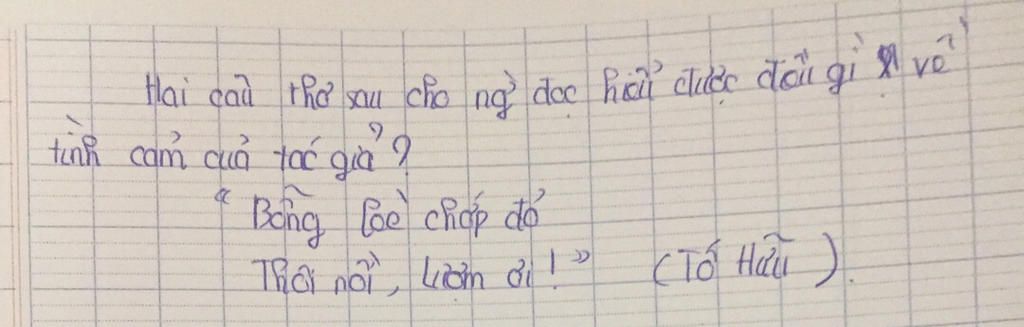 Hai câu thơ sau cho ng` đọc hiểu được điều gì về
tình cảm của tác giả?
"Bỗng loè chớp đỏ
Thôi rồi, Lượm ơi!" (Tố Hữu).